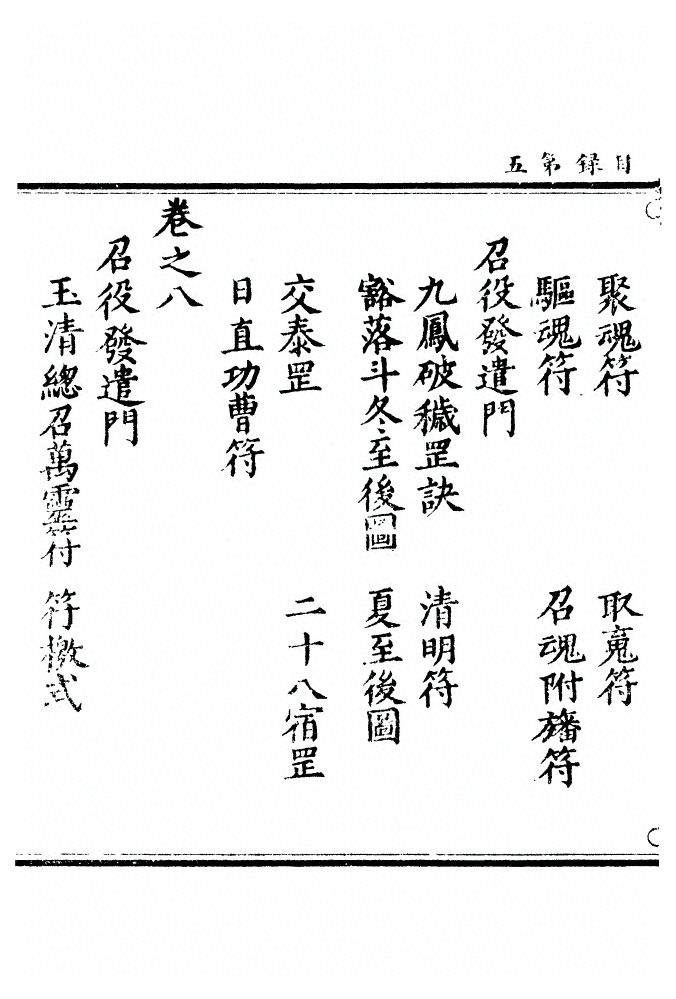 目錄第五
聚魂符　取䰟符
驅魂符　召魂附旛符
召役發遣門
九鳳破穢罡訣　清明符
豁落斗冬至後圖　夏至後圖
交泰罡　二十八宿罡
日直功曹符
卷之八
召役發遣門
玉清總召萬靈符　符檄式